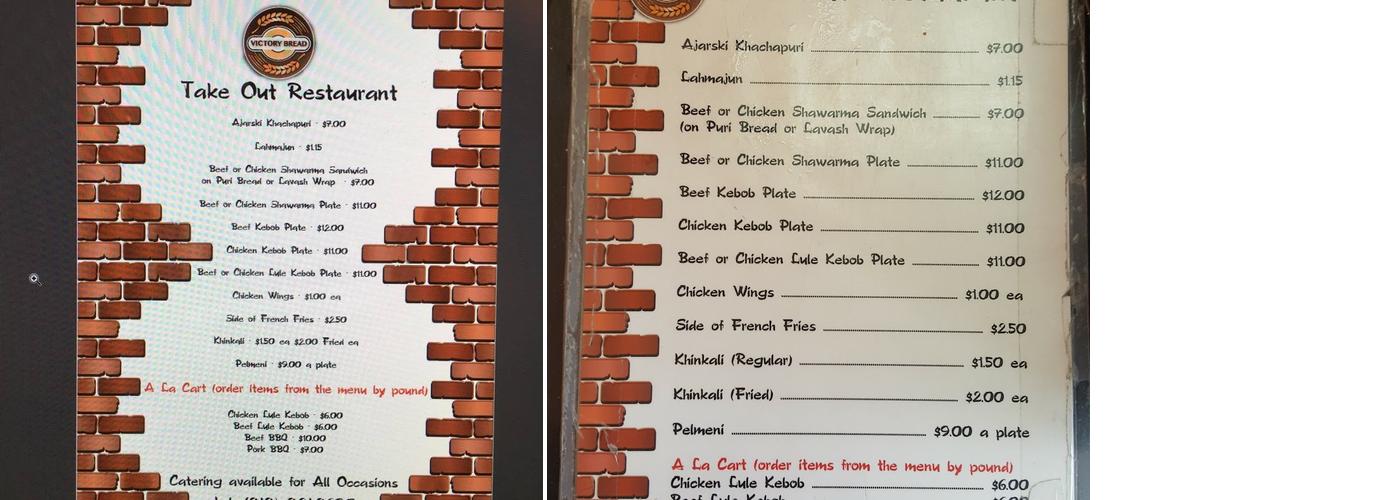 VICTORY BREAD
Take Out Restaurant
Ajarski Khachapuri · $7.00
Lahmajun · $1.15
Beef or Chicken Shawarma Sandwich
on Puri Bread or Lavash Wrap · $7.00
Beef or Chicken Shawarma Plate · $11.00
Beef Kebob Plate · $12.00
Chicken Kebob Plate · $11.00
Beef or Chicken Lule Kebob Plate · $11.00
Chicken Wings · $1.00 ea
Side of French Fries · $2.50
Khinkali · $1.50 ea $2.00 Fried ea
Pelmeni · $9.00 a plate
A La Cart (order items from the menu by pound)
Chicken Lule Kebob · $6.00
Beef Lule Kebob · $6.00
Beef BBQ · $10.00
Pork BBQ · $7.00
Catering available for All Occasions
Ajarski Khachapuri $7.00
Lahmajun $1.15
Beef or Chicken Shawarma Sandwich $7.00
(on Puri Bread or Lavash Wrap)
Beef or Chicken Shawarma Plate $11.00
Beef Kebob Plate $12.00
Chicken Kebob Plate $11.00
Beef or Chicken Lule Kebob Plate $11.00
Chicken Wings $1.00 ea
Side of French Fries $2.50
Khinkali (Regular) $1.50 ea
Khinkali (Fried) $2.00 ea
Pelmeni $9.00 a plate
A La Cart (order items from the menu by pound)
Chicken Lule Kebob $6.00
Beef Lule Kebob $6.00